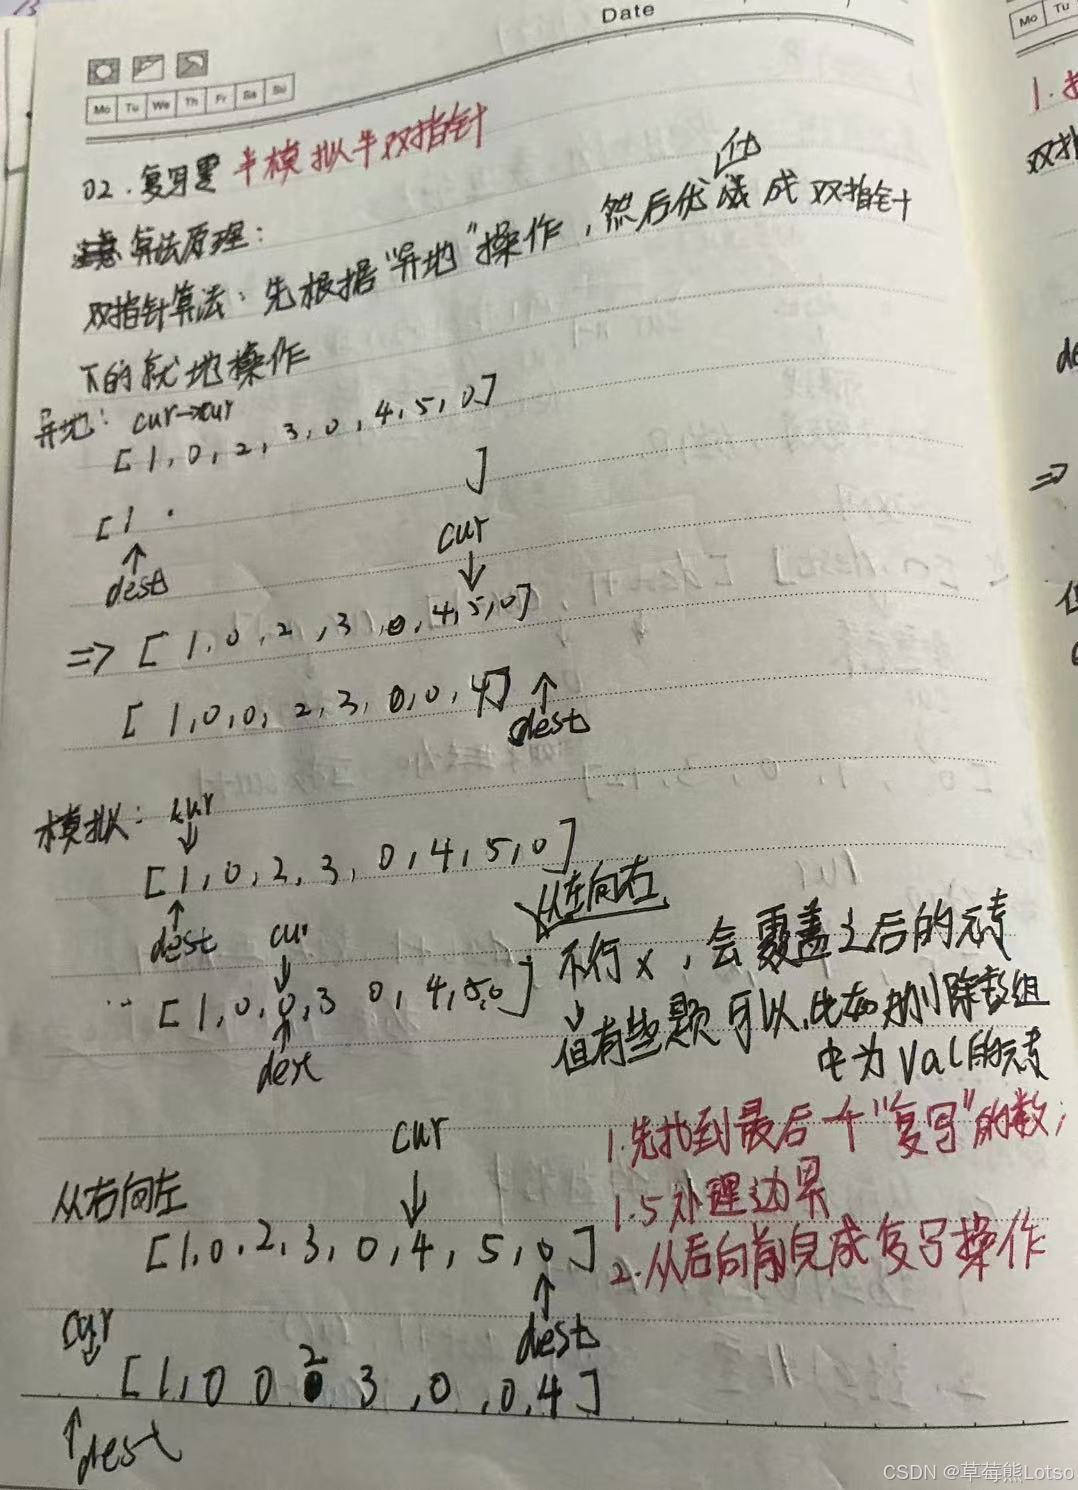 Date
Mo Tu We Th Fr Sa Su
Mo Tu
02.复写零 模拟 双指针
算法原理:
双指针算法:先根据"异地"操作,然后优化成双指针
下的就地操作
异地: cur→cur
[1,0,2,3,0,4,5,0]
[1 · ]
dest
cur
=> [1,0,2,3,0,4,5,0]
[1,0,0,2,3,0,0,4]
dest
模拟: cur
[1,0,2,3,0,4,5,0]
dest
cur
从左向右
[1,0,0,3 0,4,5,0] 不行x,会覆盖之后的元素
dest
但有些题可以,比如删除数组
中为val的元素
1.先找到最后一个"复写"的数;
1.5处理边界
2.从后向前完成复写操作
从右向左
cur
[1,0,2,3,0,4,5,0]
dest
cur
2
[1,0 0 0 3,0,0,4]
dest
1.
双指
=>
CSDN @草莓熊Lotso